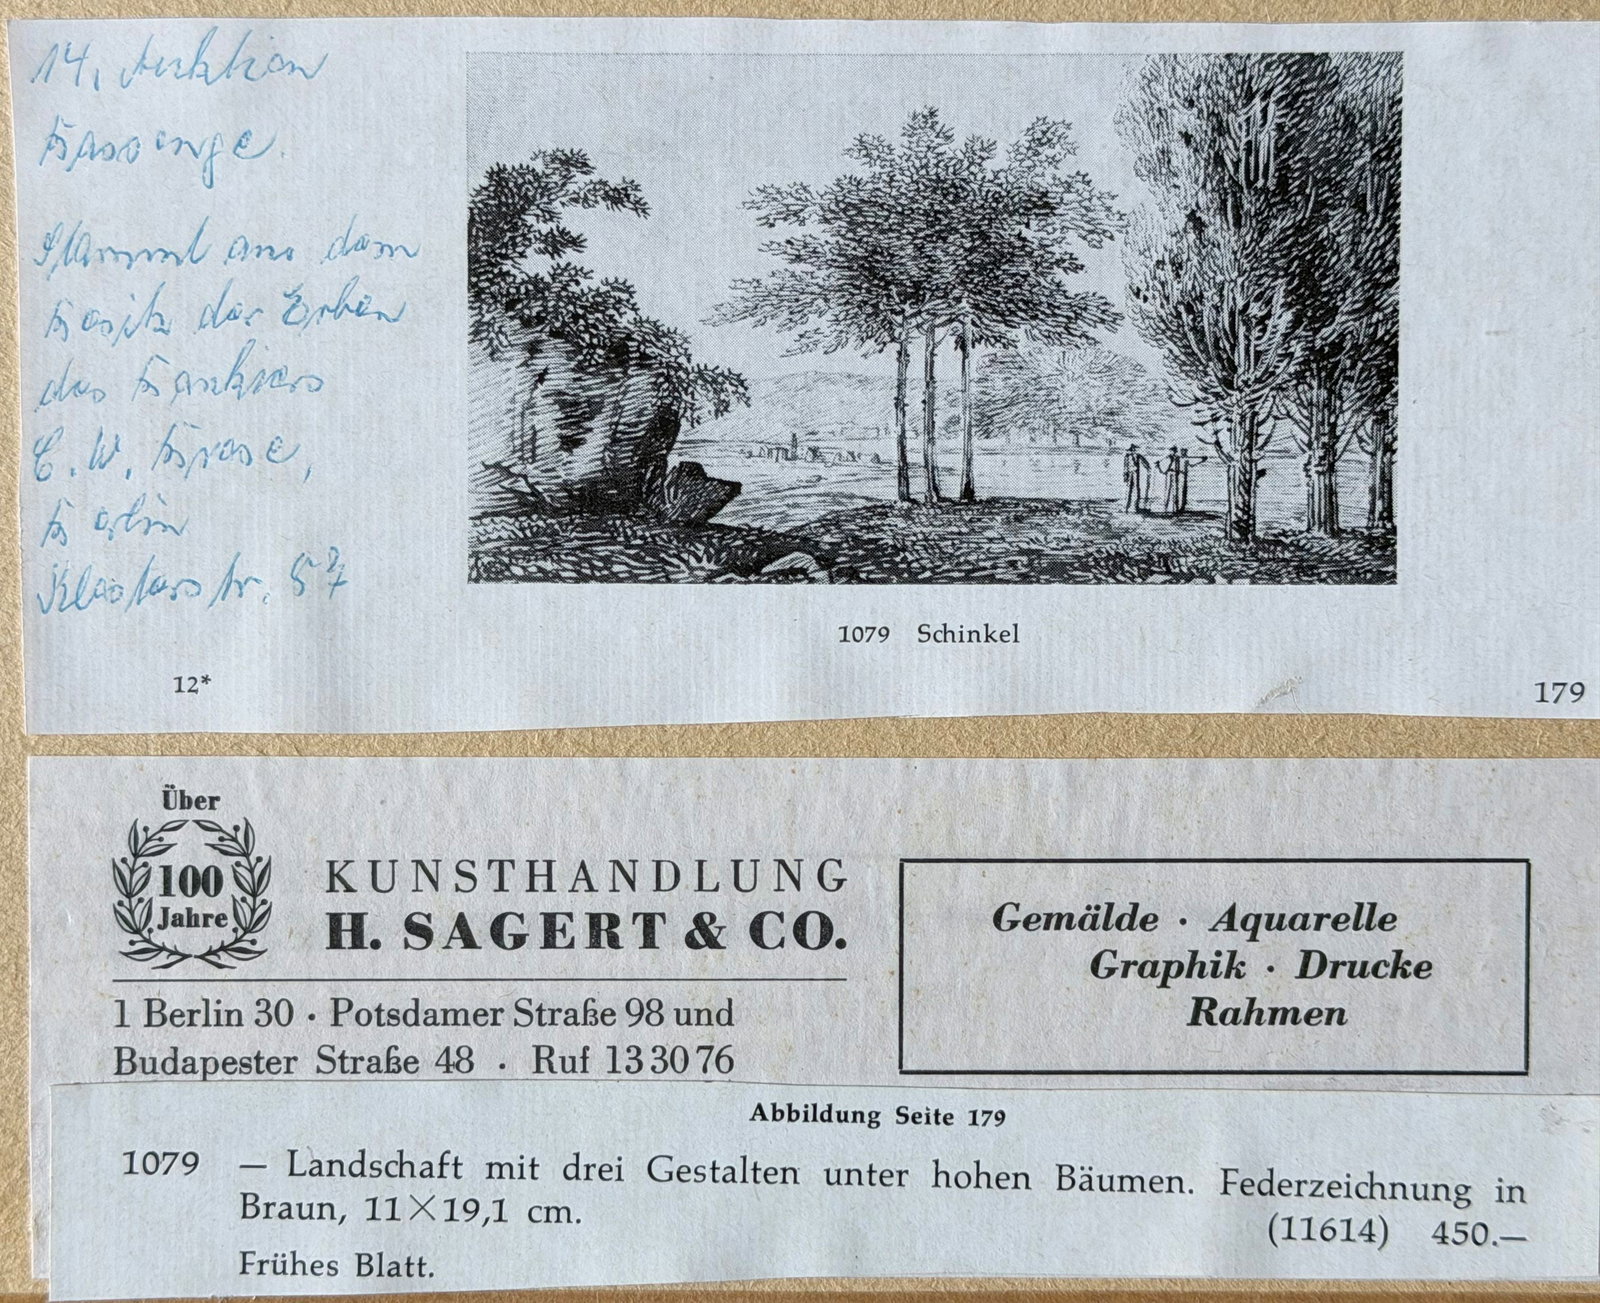 14. Auktion
Bassenge.
Stammt aus dem
Besitz der Erben
des Bankiers
C. W. Brose,
Berlin
Klosterstr. 57
1079 Schinkel
12*
179
Über
100
Jahre
KUNSTHANDLUNG
H. SAGERT & CO.
1 Berlin 30 · Potsdamer Straße 98 und
Budapester Straße 48 · Ruf 13 30 76
Gemälde · Aquarelle
Graphik · Drucke
Rahmen
Abbildung Seite 179
1079 — Landschaft mit drei Gestalten unter hohen Bäumen. Federzeichnung in
Braun, 11×19,1 cm. (11614) 450.—
Frühes Blatt.